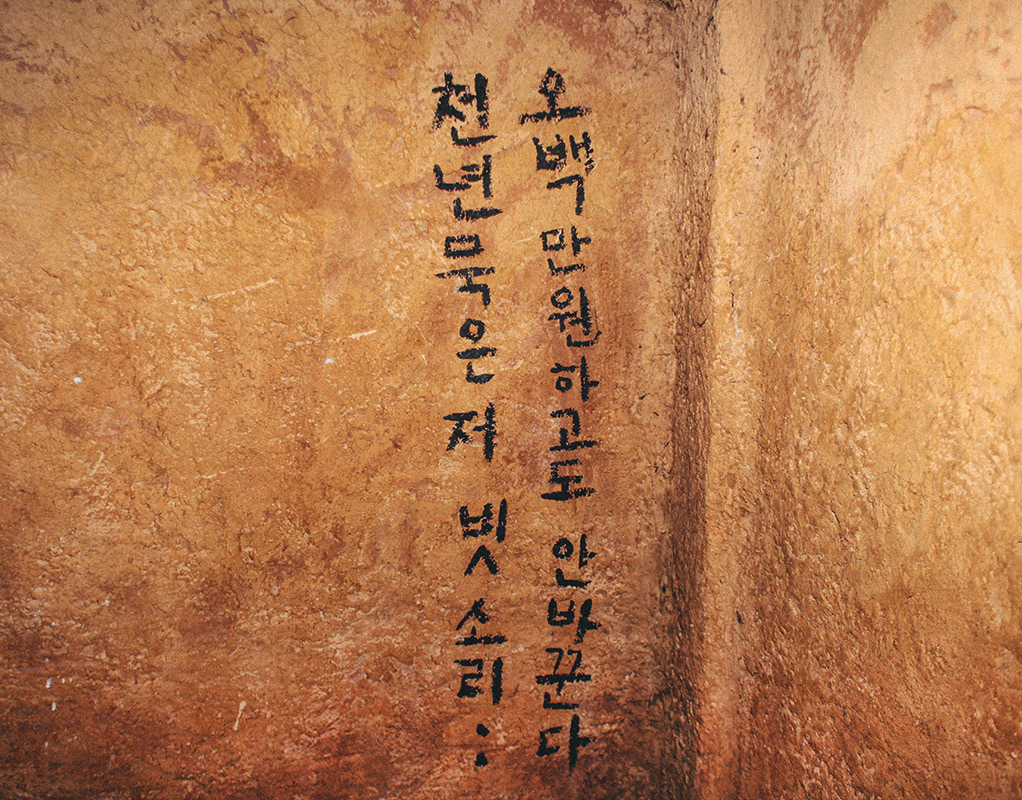 오백만원하고도 안바꾼다
천년묵은저 빗소리: